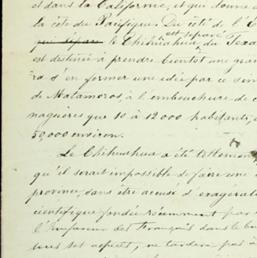 et dans la Californie, et qui donne
la côte du Pacifique. Du côté de l'E
le Chihuahua est séparé du Texa
est destiné à prendre bientôt une gran
d'en former une idée par ce
de Matamoros, à l'embouchure de
naguères que 10 à 12000 habitants,
50,000 environ.
Le Chihuahua a été
qu'il serait impossible de faire une
province, sans être accusé d'exagérati
scientifique fondée récemment par
l'Empereur des Français dans le bu
son aspect, ne tardera pas à